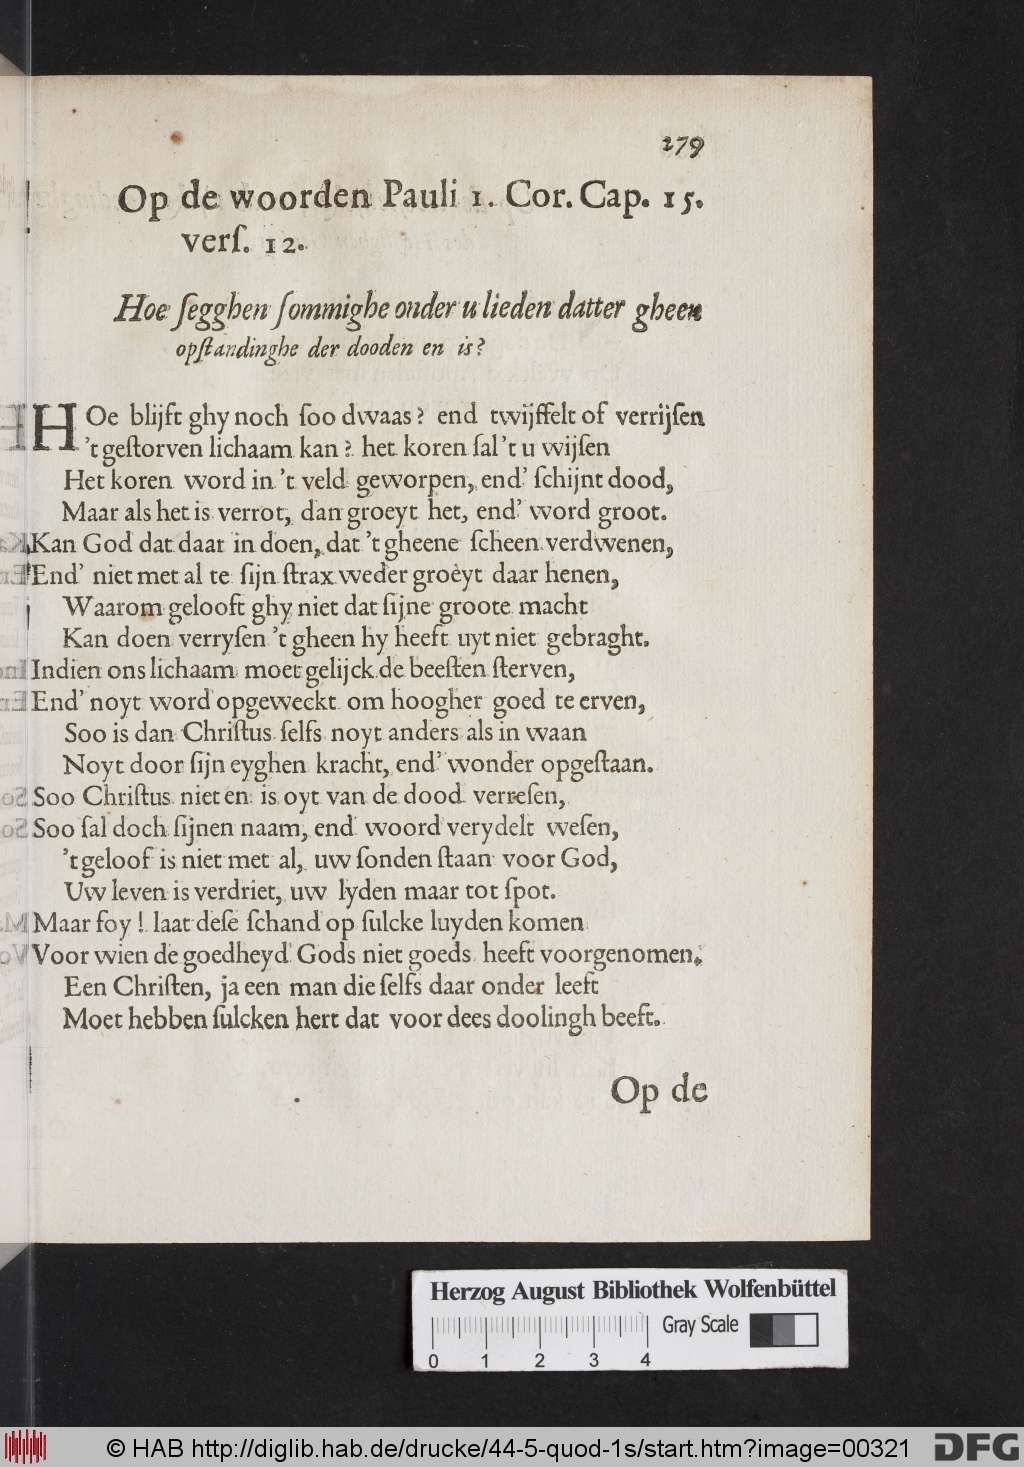 279
Op de woorden Pauli 1. Cor. Cap. 15.
verſ. 12.
Hoe ſegghen ſommighe onder u lieden datter gheen
opſtandinghe der dooden en is?
HOe blijft ghy noch ſoo dwaas? end twijffelt of verrijſen
't geſtorven lichaam kan? het koren ſal 't u wijſen
Het koren word in 't veld geworpen, end' ſchijnt dood,
Maar als het is verrot, dan groeyt het, end' word groot.
Kan God dat daar in doen, dat 't gheene ſcheen verdwenen,
End' niet met al te ſijn ſtrax weder groeyt daar henen,
Waarom gelooft ghy niet dat ſijne groote macht
Kan doen verryſen 't gheen hy heeft uyt niet gebraght.
Indien ons lichaam moet gelijck de beeſten ſterven,
End' noyt word opgeweckt om hoogher goed te erven,
Soo is dan Chriſtus ſelfs noyt anders als in waan
Noyt door ſijn eyghen kracht, end' wonder opgeſtaan.
Soo Chriſtus niet en is oyt van de dood verreſen,
Soo ſal doch ſijnen naam, end woord verydelt weſen,
't geloof is niet met al, uw ſonden ſtaan voor God,
Uw leven is verdriet, uw lyden maar tot ſpot.
Maar foy! laat deſe ſchand op ſulcke luyden komen
Voor wien de goedheyd Gods niet goeds heeft voorgenomen,
Een Chriſten, ja een man die ſelfs daar onder leeft
Moet hebben ſulcken hert dat voor dees doolingh beeft.
Op de
Herzog August Bibliothek Wolfenbüttel
Gray Scale
0 1 2 3 4
© HAB http://diglib.hab.de/drucke/44-5-quod-1s/start.htm?image=00321
DFG